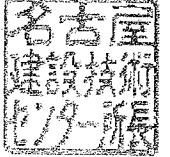 名古屋
建設技術
センター張